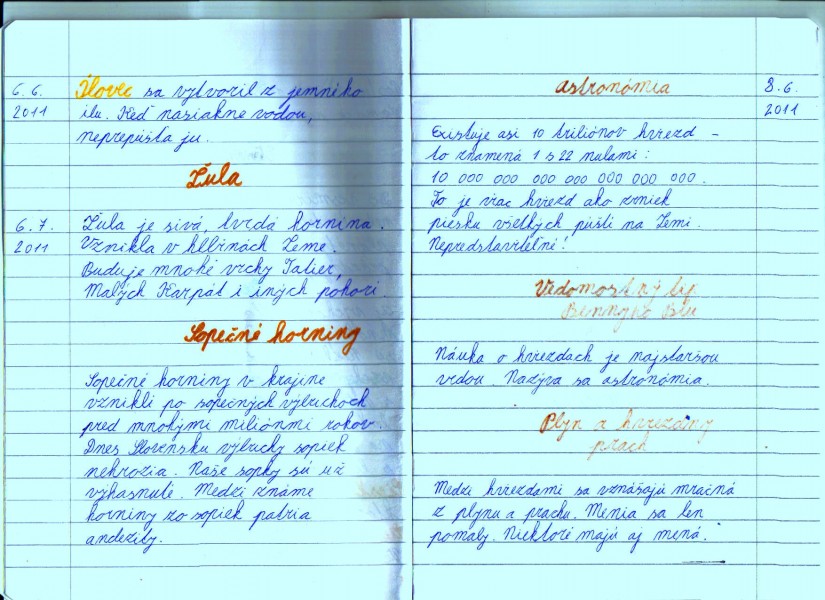 6.6.
2011
Ílovec sa vytvoril z jemního
ílu. Keď nasiakne vodou,
neprepúšťa ju.
Žula
6.7.
2011
Žula je sivá, tvrdá hornina.
Vznikla v hlbinách Zeme.
Buduje mnohé vrchy Tatier,
Malých Karpát i iných pohorí.
Sopečné horniny
Sopečné horniny v krajine
vznikli po sopečných výbuchoch
pred mnohými miliónmi rokov.
Dnes Slovensku výbuchy sopiek
nehrozia. Naše sopky sú už
vyhasnuté. Medzi známe
horniny zo sopiek patria
andezity.
astronómia
8.6.
2011
Existuje asi 10 triliónov hviezd –
to znamená 1 s 22 nulami:
10 000 000 000 000 000 000 000.
To je viac hviezd ako zrniek
piesku všetkých púští na Zemi.
Nepredstaviteľné!
Vedomostný tip
Bennyho Blu
Náuka o hviezdach je najstaršou
vedou. Nazýva sa astronómia.
Plyn a hviezdny
prach
Medzi hviezdami sa vznášajú mračná
z plynu a prachu. Menia sa len
pomaly. Niektoré majú aj mená.